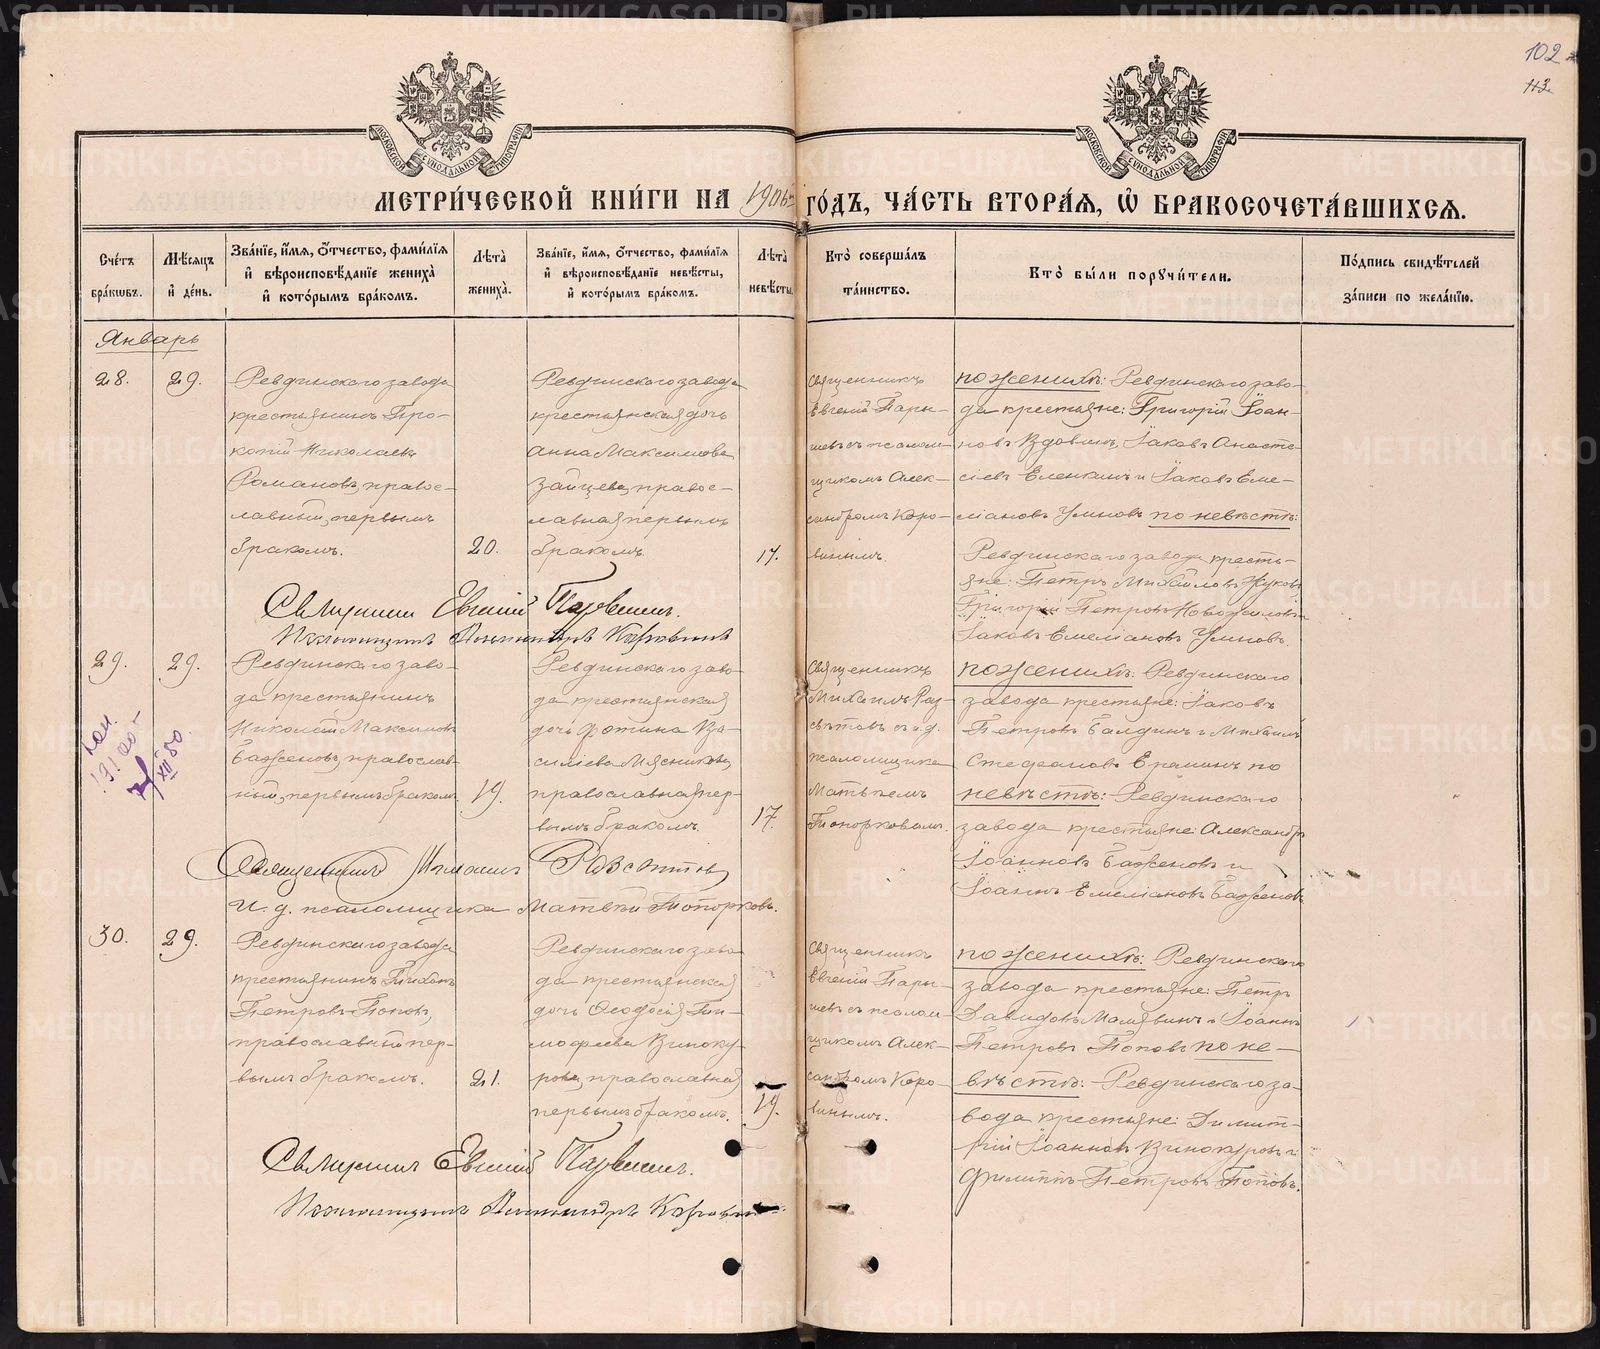 102
113
МЕТРИ́ЧЕСКОЙ КНИ́ГИ НА 1906 ГО́ДЪ, ЧА́СТЬ ВТОРА́Я, Ѡ БРАКОСОЧЕТА́ВШИХСЯ.
Сче́тъ бра́кѡвъ.
Мѣ́сяцъ и́ де́нь.
Зва́нїе, и́мя, ѻ҆́тчество, фами́лїя и́ вѣроисповѣ́данїе жениха̀ и́ кото́рымъ бра́комъ.
Лѣ́та̀ жениха̀.
Зва́нїе, и́мя, ѻ҆́тчество, фами́лїя и́ вѣроисповѣ́данїе невѣ́сты, и́ кото́рымъ бра́комъ.
Лѣ́та̀ невѣ́сты.
Кто̀ соверша́лъ та́инство.
Кто̀ бы́ли порꙋчи́тели.
По́дпись свидѣ́телей за́писи по жела́нїю.
Январь
28.
29.
Ревдинскаго завода
крестьянинъ Про-
копій Николаевъ
Романовъ, правос-
лавный, первымъ
бракомъ.
20.
Ревдинскаго завода
крестьянская дочь
Анна Максимова
Зайцева, правос-
лавная, первымъ
бракомъ.
17.
Священникъ
Евгеній Пары-
шевъ съ псалом-
щикомъ Алек-
сандромъ Коро-
винымъ.
по женихѣ: Ревдинскаго заво-
да крестьяне: Григорій Іоан-
новъ Вдовинъ, Іаковъ Анаста-
сіевъ Еленкинъ и Іаковъ Еме-
ліановъ Умновъ по невѣстѣ:
Ревдинскаго завода кресть-
яне: Петръ Михайловъ Жуковъ
Григорій Петровъ Новожиловъ
Іаковъ Емеліановъ Умновъ.
Священникъ Евгеній Парышевъ.
Псаломщикъ Александръ Коровинъ
29.
29.
Ревдинскаго заво-
да крестьянинъ
Николай Максимовъ
Баженовъ, православ-
ный, первымъ бракомъ
19.
Ревдинскаго заво-
да крестьянская
дочь Фотина Ва-
силіева Мясникова,
православная, пер-
вымъ бракомъ.
17.
Священникъ
Михаилъ Раз-
сѣтовъ съ и. д.
псаломщика
Матѳеемъ
Топорковымъ.
по женихѣ: Ревдинскаго
завода крестьяне: Іаковъ
Петровъ Балдинъ и Михаилъ
Стефановъ Ераминъ по
невѣстѣ: Ревдинскаго
завода крестьяне: Александръ
Іоанновъ Баженовъ и
Іоаннъ Емеліановъ Баженовъ
XII 50
Священникъ Михаилъ
И. д. псаломщика Матвѣй Топорковъ.
30.
29.
Ревдинскаго завода
крестьянинъ Тихонъ
Петровъ Поповъ,
православный, пер-
вымъ бракомъ.
21.
Ревдинскаго заво-
да крестьянская
дочь Ѳеодосія Ти-
моѳеева Виноку-
рова, православная,
первымъ бракомъ.
19.
Священникъ
Евгеній Пары-
шевъ съ псалом-
щикомъ Алек-
сандромъ Коро-
винымъ.
по женихѣ: Ревдинскаго
завода крестьяне: Петръ
Давидовъ Малявинъ и Іоаннъ
Петровъ Поповъ по не-
вѣстѣ: Ревдинскаго за-
вода крестьяне: Димит-
рій Іоанновъ Винокуровъ и
Филиппъ Петровъ Поповъ.
Священникъ Евгеній Парышевъ.
Псаломщикъ Александръ Коровинъ
METRIKI.GASO-URAL.RU